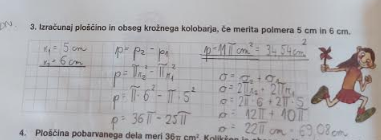 3. Izračunaj ploščino in obseg krožnega kolobarja, če merita polmera 5 cm in 6 cm.
r₁ = 5 cm
r₂ = 6 cm
p = p₂ - p₁
p = πr₂² - πr₁²
p = π·6² - π·5²
p = 36π - 25π
p = 11π cm² = 34.54 cm²
o = o₂ + o₁
o = 2πr₂ + 2πr₁
o = 2π·6 + 2π·5
o = 12π + 10π
o = 22π cm = 69,08 cm
4. Ploščina pobarvanega dela meri 36π cm².